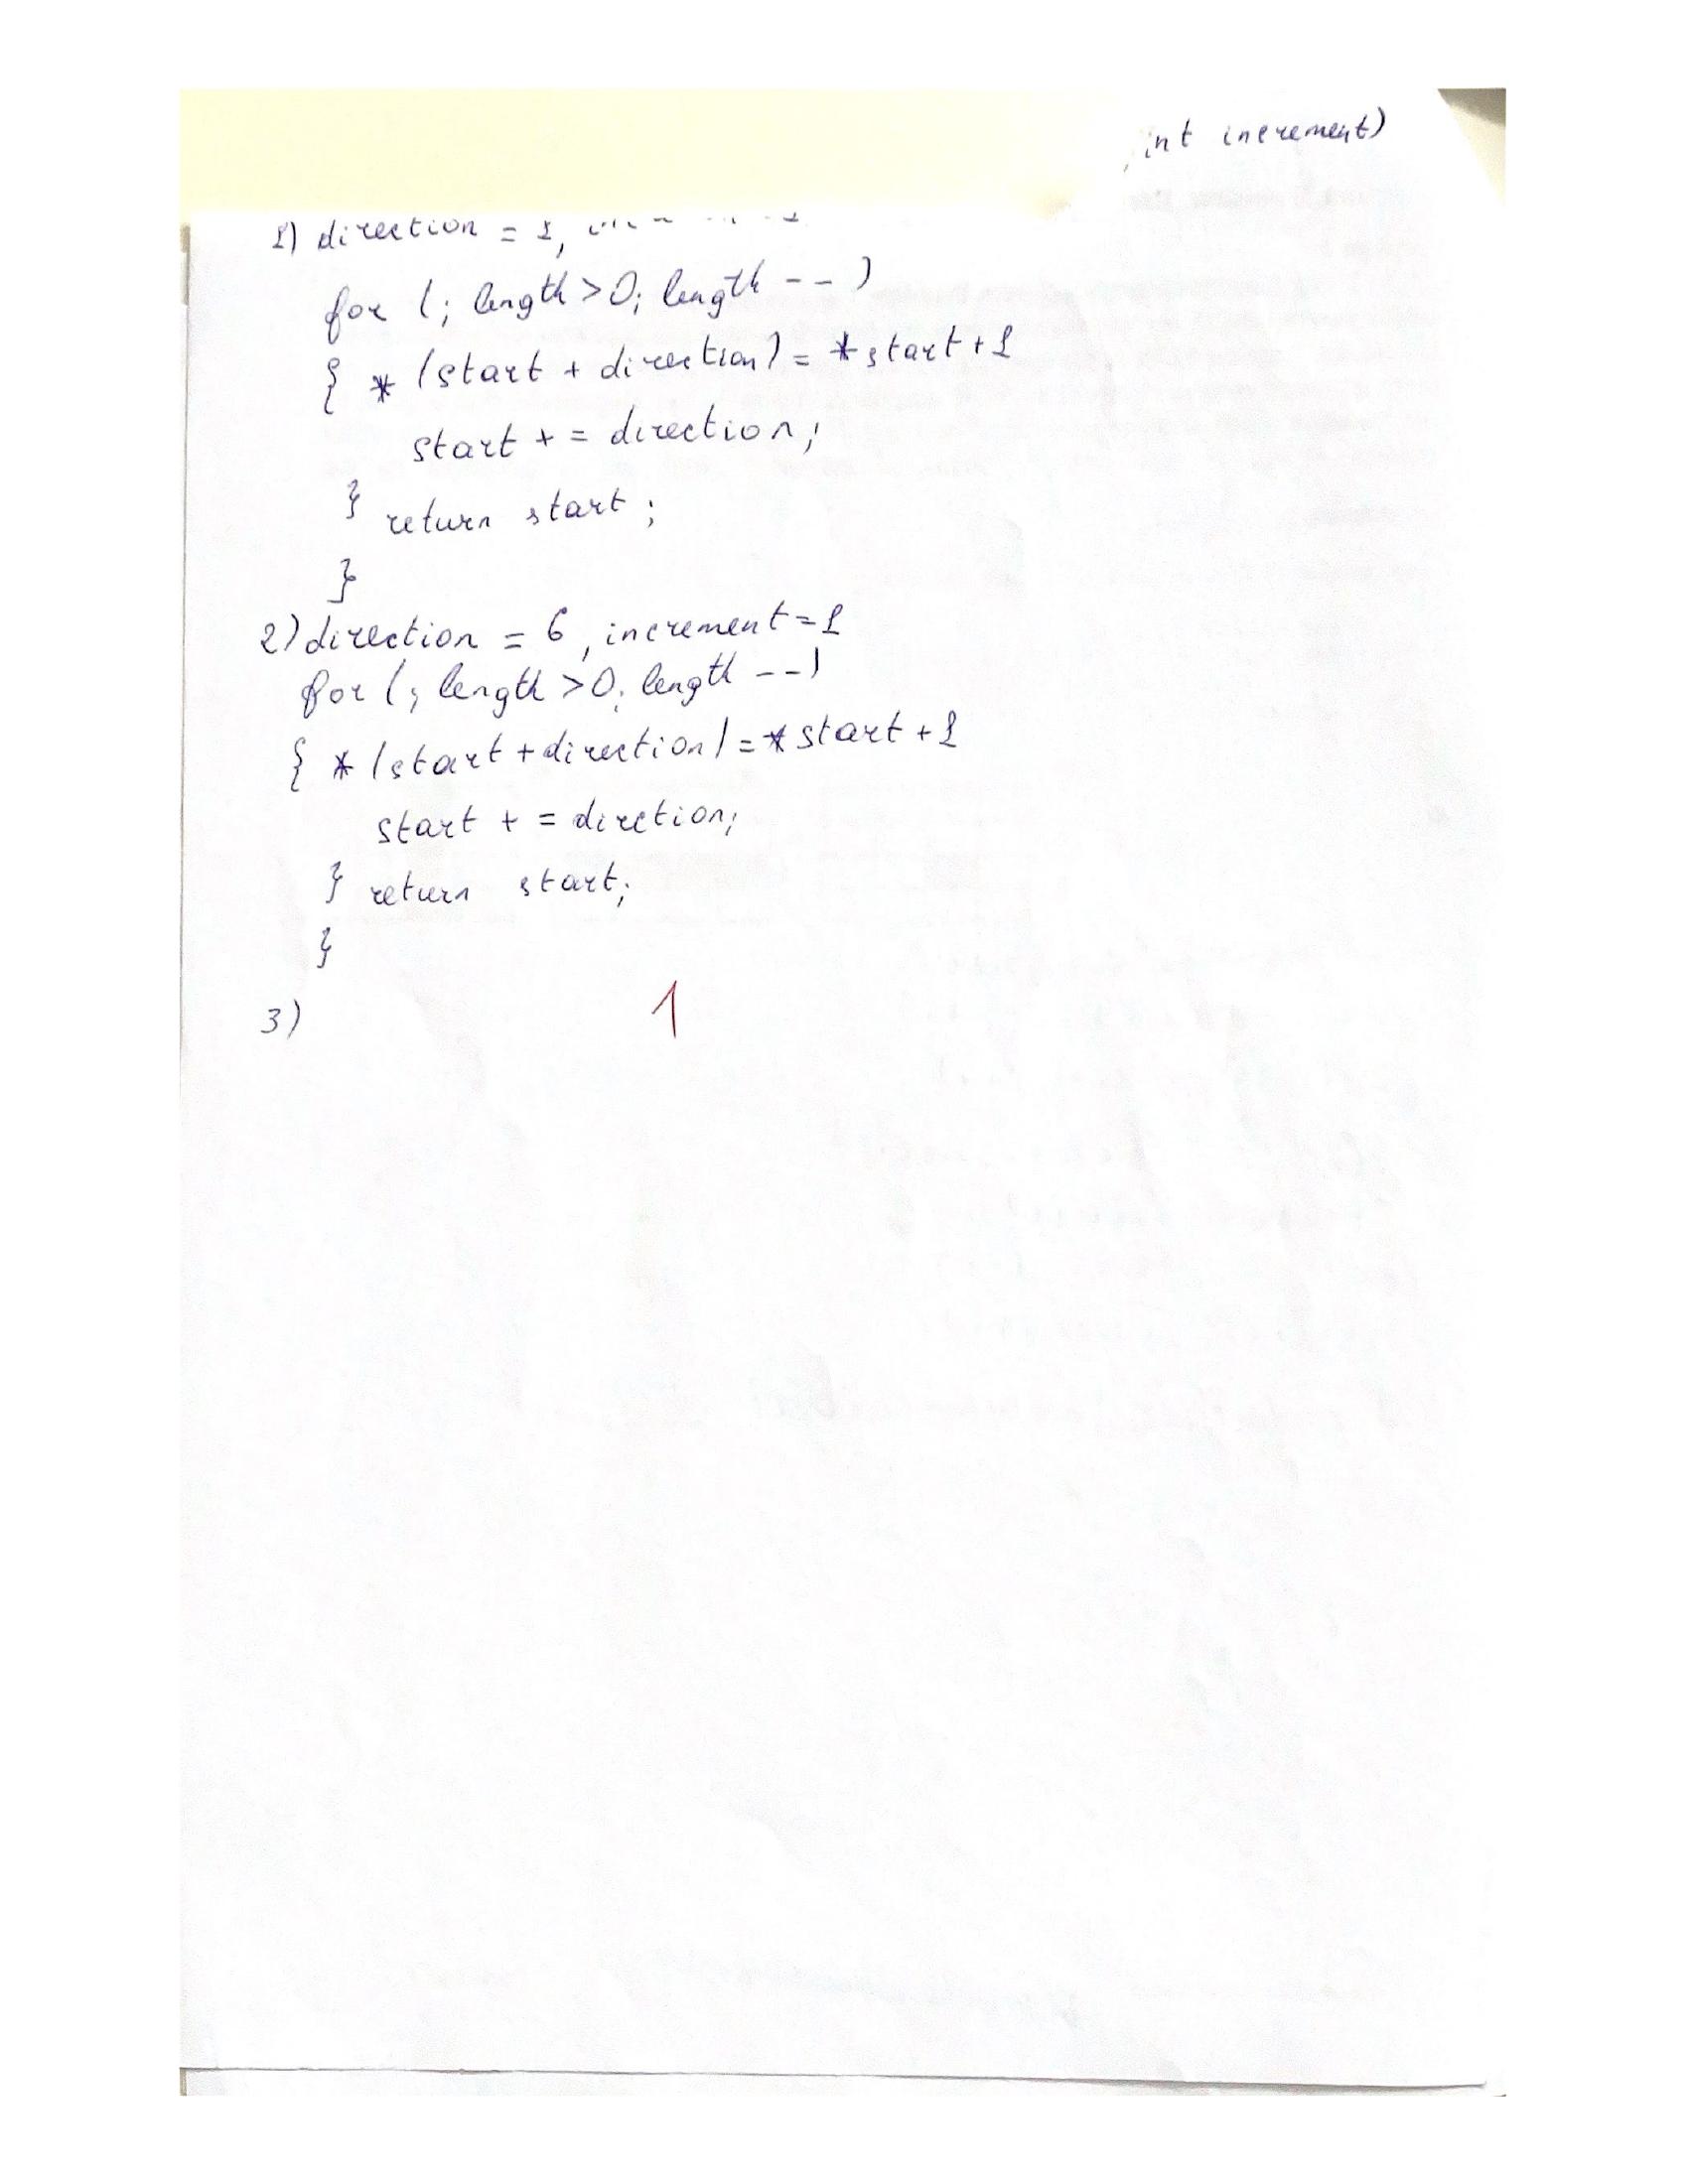 , int increment)
1) direction = 1,
for (; length > 0; length -- )
{ * (start + direction) = *start + 1
start + = direction;
} return start ;
}
2) direction = 6, increment = 1
for (; length > 0; length -- )
{ * (start + direction) = *start + 1
start + = direction;
} return start;
}
3)
1